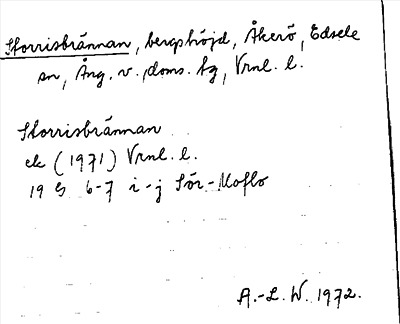 Storrisbrännan, bergshöjd, Åkerö, Edsele
sn, Ång. v. doms. hg, Vrnl. l.
Storrisbrännan
ek (1971) Vrnl. l.
19 G 6-7 i-j Sör-Moflo
A.-L. W. 1972.